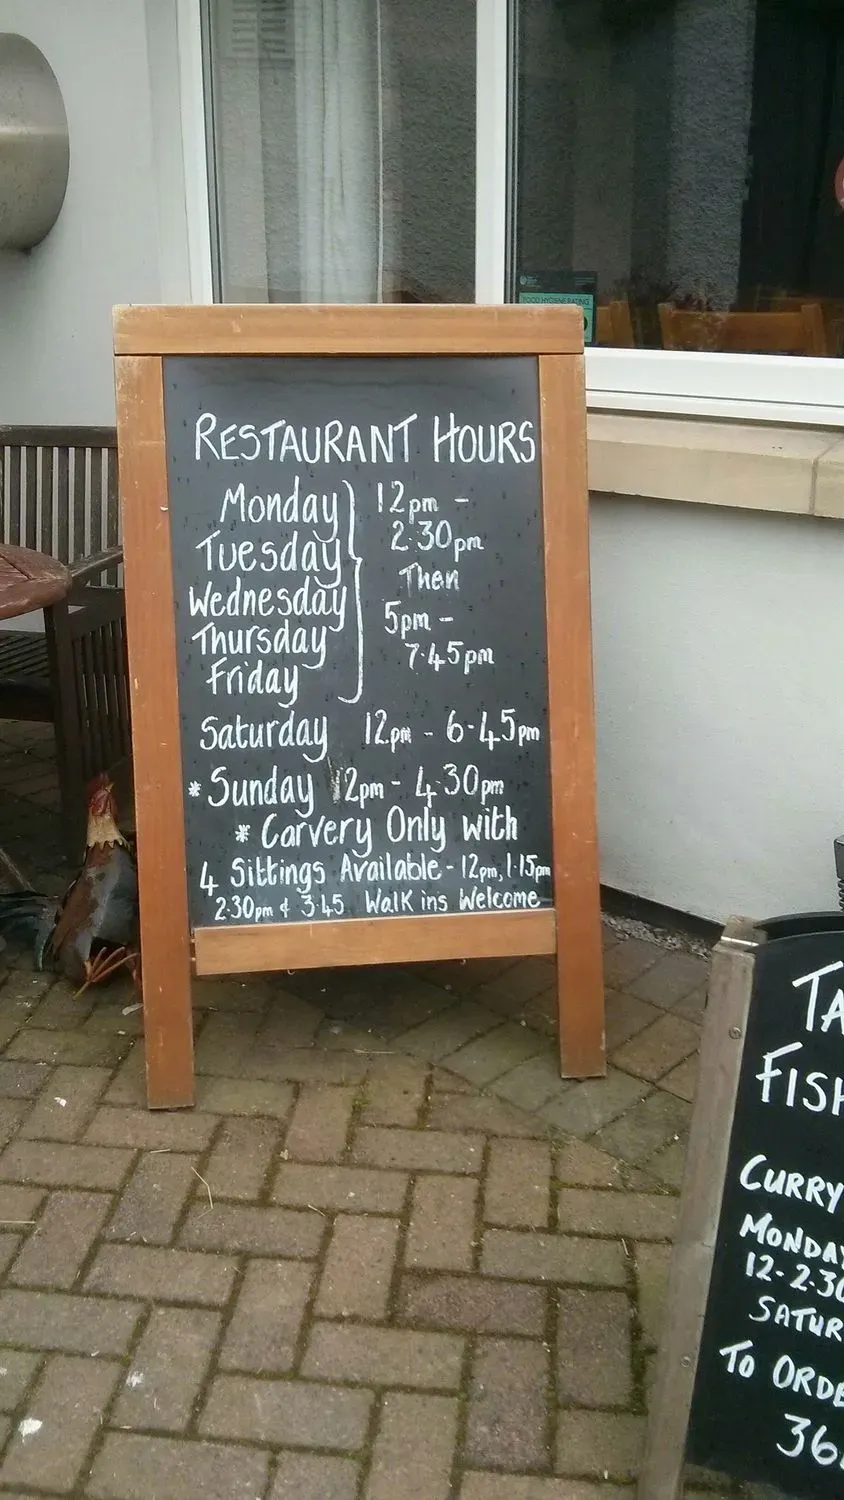 FOOD HYGIENE RATING
RESTAURANT HOURS
Monday 12pm -
Tuesday 2·30pm
Wednesday Then
Thursday 5pm -
Friday 7·45pm
Saturday 12pm - 6·45pm
* Sunday 12pm - 4·30pm
* Carvery Only with
4 Sittings Available - 12pm, 1·15pm
2·30pm & 3·45 Walk ins Welcome
TA
FISH
CURRY
MONDAY
12-2·30
SATUR
TO ORDE
36